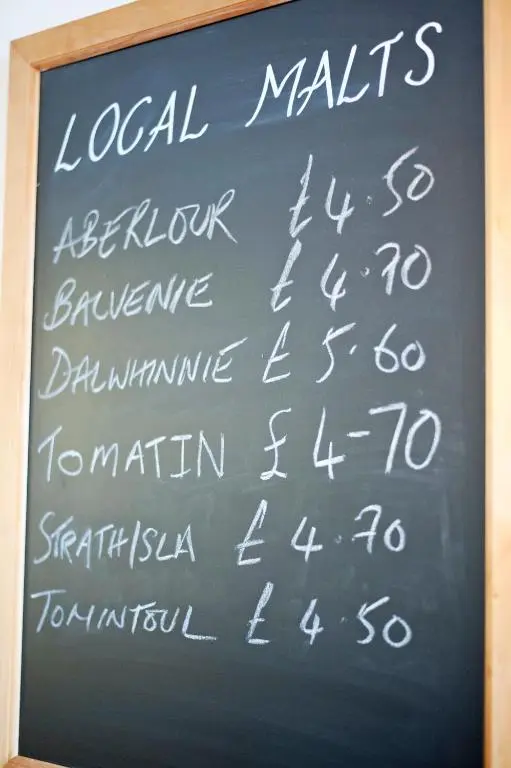 LOCAL MALTS
ABERLOUR £4.50
BALVENIE £4.70
DALWHINNIE £5.60
TOMATIN £4-70
STRATHISLA £4.70
TOMINTOUL £4.50